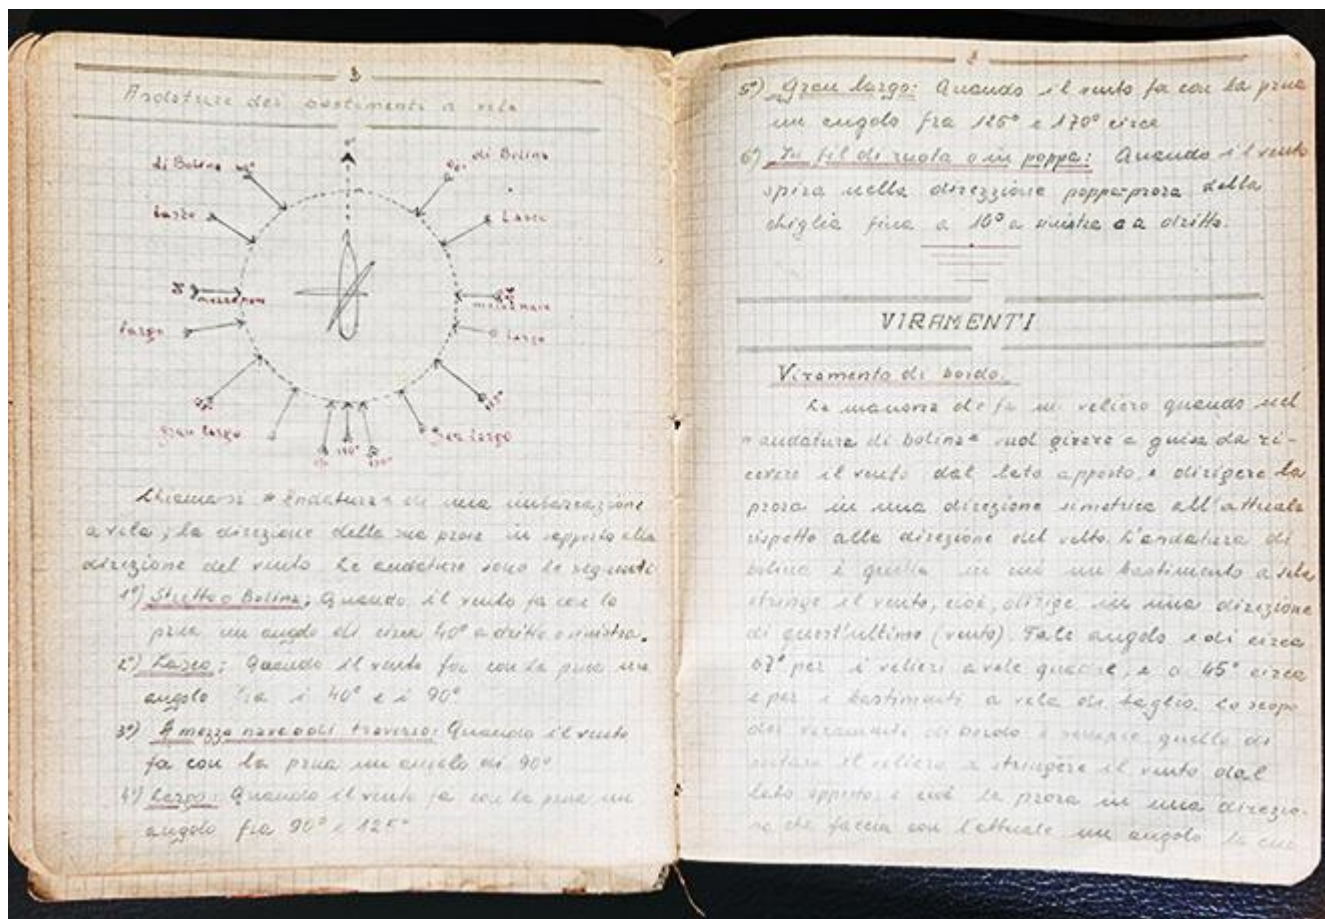 3
Andature dei bastimenti a vela
0°
di Bolina 40°
40° di Bolina
Lasco
Lasco
mezzanave
mezzanave
Largo
Largo
Gran largo
Gran largo
170°
Chiamasi "Andatura" di una imbarcazione
a vela, la direzione della sua prora in rapporto alla
direzione del vento. Le andature sono le seguenti
1°) Stretta o Bolina; Quando il vento fa con la
prua un angolo di circa 40° a dritta o sinistra.
2°) Lasco; Quando il vento fa con la prua un
angolo fra i 40° e i 90°
3°) A mezza nave o di traverso: Quando il vento
fa con la prua un angolo di 90°
4°) Largo: Quando il vento fa con la prua un
angolo fra 90° e 125°
5°) Gran largo: Quando il vento fa con la prua
un angolo fra 125° e 170° circa
6°) In fil di ruota o in poppa: Quando il vento
spira nella direzzione poppa-prora della
chiglia fino a 10° a sinistra e a dritta.
VIRAMENTI
Viramento di bordo.
La manovra che fa un veliero quando nel
"andatura di bolina" vuol girare a guisa da ri-
cevere il vento dal lato opposto, e dirigere la
prora in una direzione simetrica all'attuale
rispetto alla direzione del vento. L'andatura di
bolina è quella in cui un bastimento a vela
stringe il vento, cioè, dirige in una direzione
di quest'ultimo (vento). Tale angolo e di circa
67° per i velieri a vele quadre, e a 45° circa
e per i bastimenti a vela di taglio. Lo scopo
dei viramenti di bordo è sempre quello di
portare il veliero a stringere il vento dal
lato opposto, e cioè la prora in una direzio-
ne che faccia con l'attuale un angolo la cui